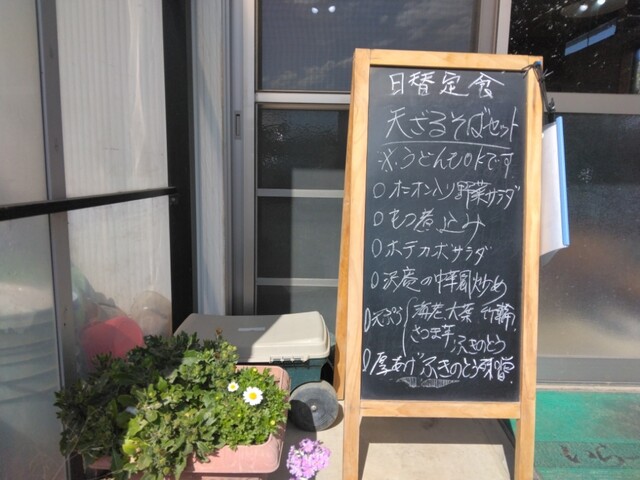 日替定食
天ざるそばセット
※うどんもOKです
○ホーオン入り野菜サラダ
○もつ煮込み
○ポテカボサラダ
○沢庵の中華風炒め
○天ぷら 海老、大葉 竹輪、
さつま芋、ふきのとう
○厚あげふきのとう味噌